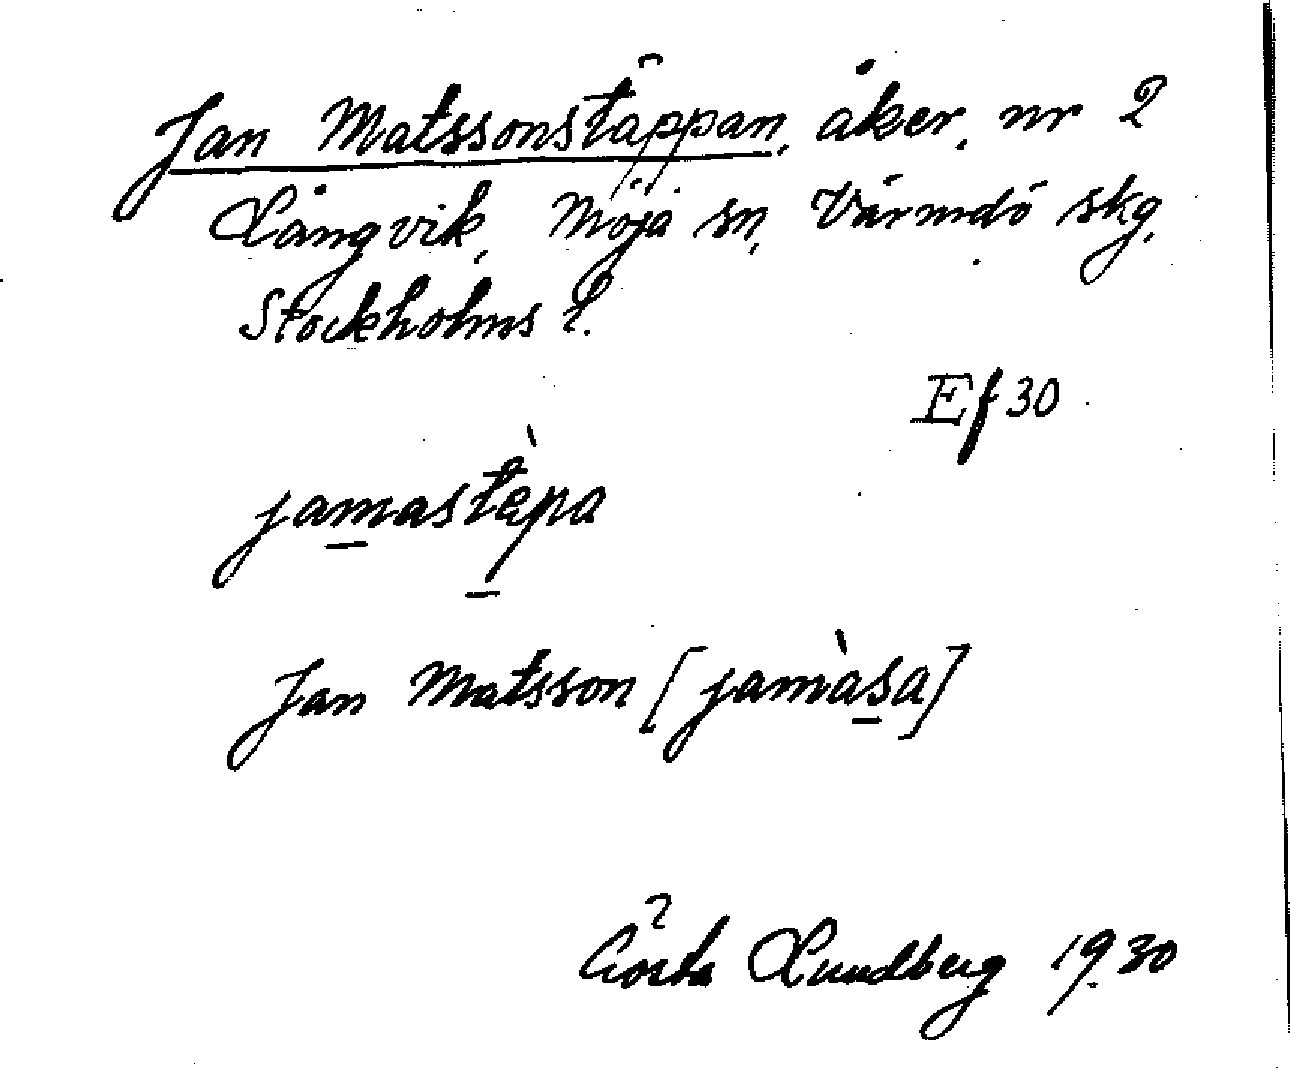 Jan Matssonstäppan, åker, nr 2
Långvik, Möja sn, Värmdö skg,
Stockholms l.
Ef 30
jamastäpa
Jan Matsson [jamàsa]
Gösta Lundberg 1930